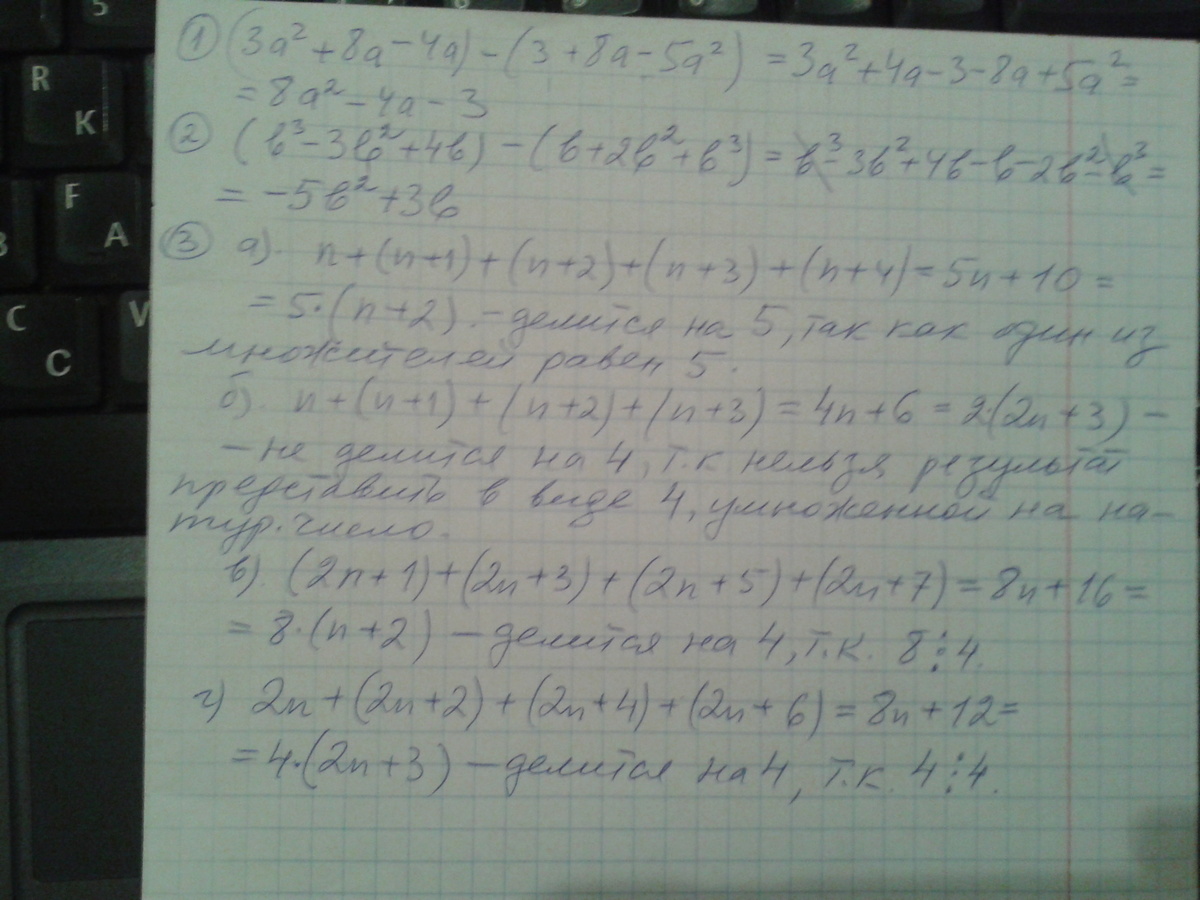 5
R
K
F
A
C
C
V
① (3a² + 8a - 4a) - (3 + 8a - 5a²) = 3a² + 4a - 3 - 8a + 5a² =
= 8a² - 4a - 3
② (b³ - 3b² + 4b) - (b + 2b² + b³) = b³ - 3b² + 4b - b - 2b² - b³ =
= -5b² + 3b
③ а). n + (n+1) + (n+2) + (n+3) + (n+4) = 5n + 10 =
= 5·(n+2). - делится на 5, так как один из
множителей равен 5.
б). n + (n+1) + (n+2) + (n+3) = 4n + 6 = 2·(2n+3) -
- не делится на 4, т.к нельзя результат
представить в виде 4, умноженной на на-
тур. число.
в). (2n+1) + (2n+3) + (2n+5) + (2n+7) = 8n + 16 =
= 8·(n+2) - делится на 4, т.к. 8⋮4.
г) 2n + (2n+2) + (2n+4) + (2n+6) = 8n + 12 =
= 4·(2n+3) - делится на 4, т.к. 4⋮4.